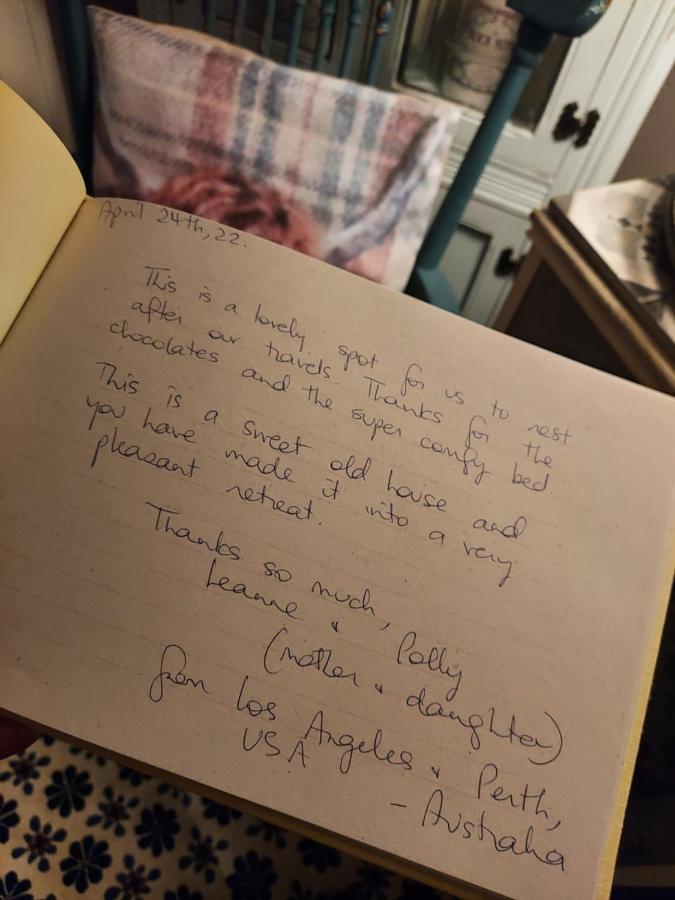 April 24th, 22.
This is a lovely spot for us to rest
after our travels. Thanks for the
chocolates and the super comfy bed.
This is a sweet old house and
you have made it into a very
pleasant retreat.
Thanks so much,
Leanne & Polly
(mother & daughter)
from Los Angeles & Perth,
USA - Australia